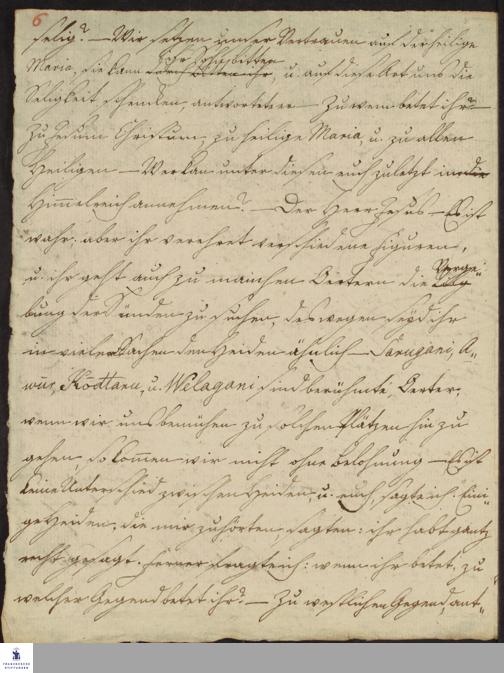 6
selig? — Wir setzen unser Vertrauen auf die heilige
Maria, sie kann ihr Sohn bitten, u. auf diese Art uns die
Seligkeit schenken, antwortete er — Zu wem betet ihr? —
Zu Jesum Christum, zu heilige Maria, u. zu allen
Heiligen — Wer kan unter diesen euch zuletzt in die
Him̅elreich annehmen? — Der Herr Jesus — Es ist
wahr, aber ihr verehret verschiedene Figuren,
u. ihr geht auch zu manchen Oertern die Verge-
bung der Sünden zu suchen, deswegen seyd ihr
in vielen Sachen den Heiden ähnlich — Sarugani, A-
wur, Ködtaru, u. Welagani sind berühmte Oerter,
wenn wir uns bemühen zu solchen Plätzen hin zu
gehen, so kom̅en wir nicht ohne Belohnung — Es ist
keine Unterschied zwischen Heiden, u. euch, sagte ich. Eini-
ge Heiden, die mir zuhörten, sagten: ihr habt gantz
recht gesagt. Ferner fragte ich: wenn ihr betet, zu
welcher Gegend betet ihr? — Zu westlichen Gegend, ant-
FRANCKESCHE
STIFTUNGEN